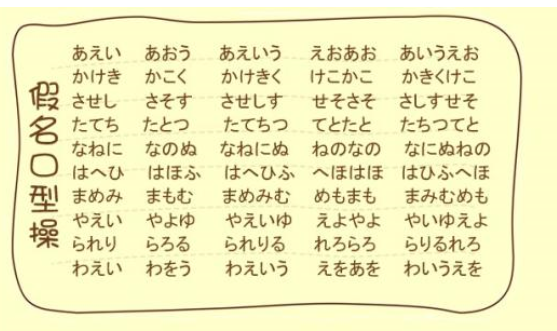 假名口型操
あえい あおう あえいう えおあお あいうえお
かけき かこく かけきく けこかこ かきくけこ
させし さそす させしす せそさそ さしすせそ
たてち たとつ たてちつ てとたと たちつてと
なねに なのぬ なねにぬ ねのなの なにぬねの
はへひ はほふ はへひふ へほはほ はひふへほ
まめみ まもむ まめみむ めもまも まみむめも
やえい やよゆ やえいゆ えよやよ やいゆえよ
られり らろる られりる れろらろ らりるれろ
わえい わをう わえいう えをあを わいうえを